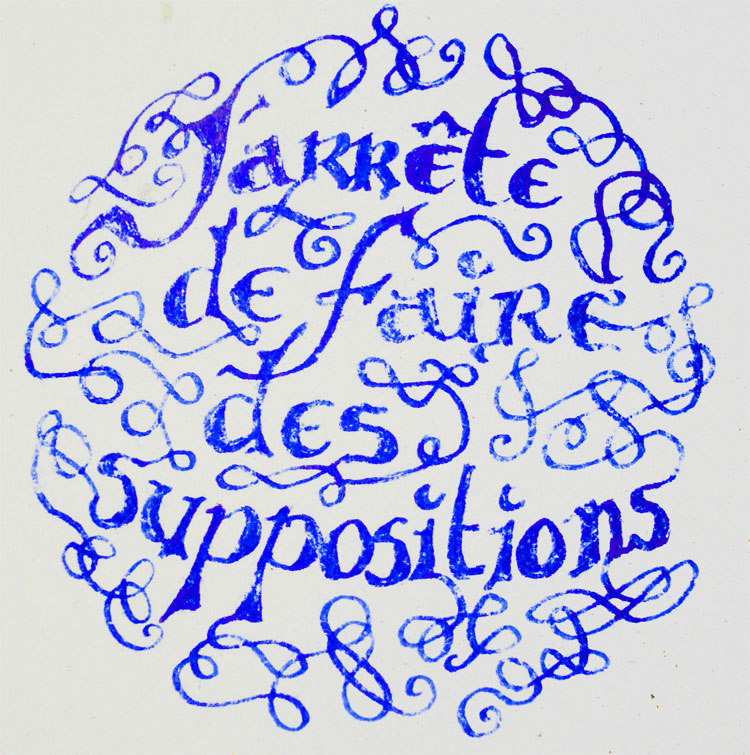 J'arrête
de faire
des
suppositions